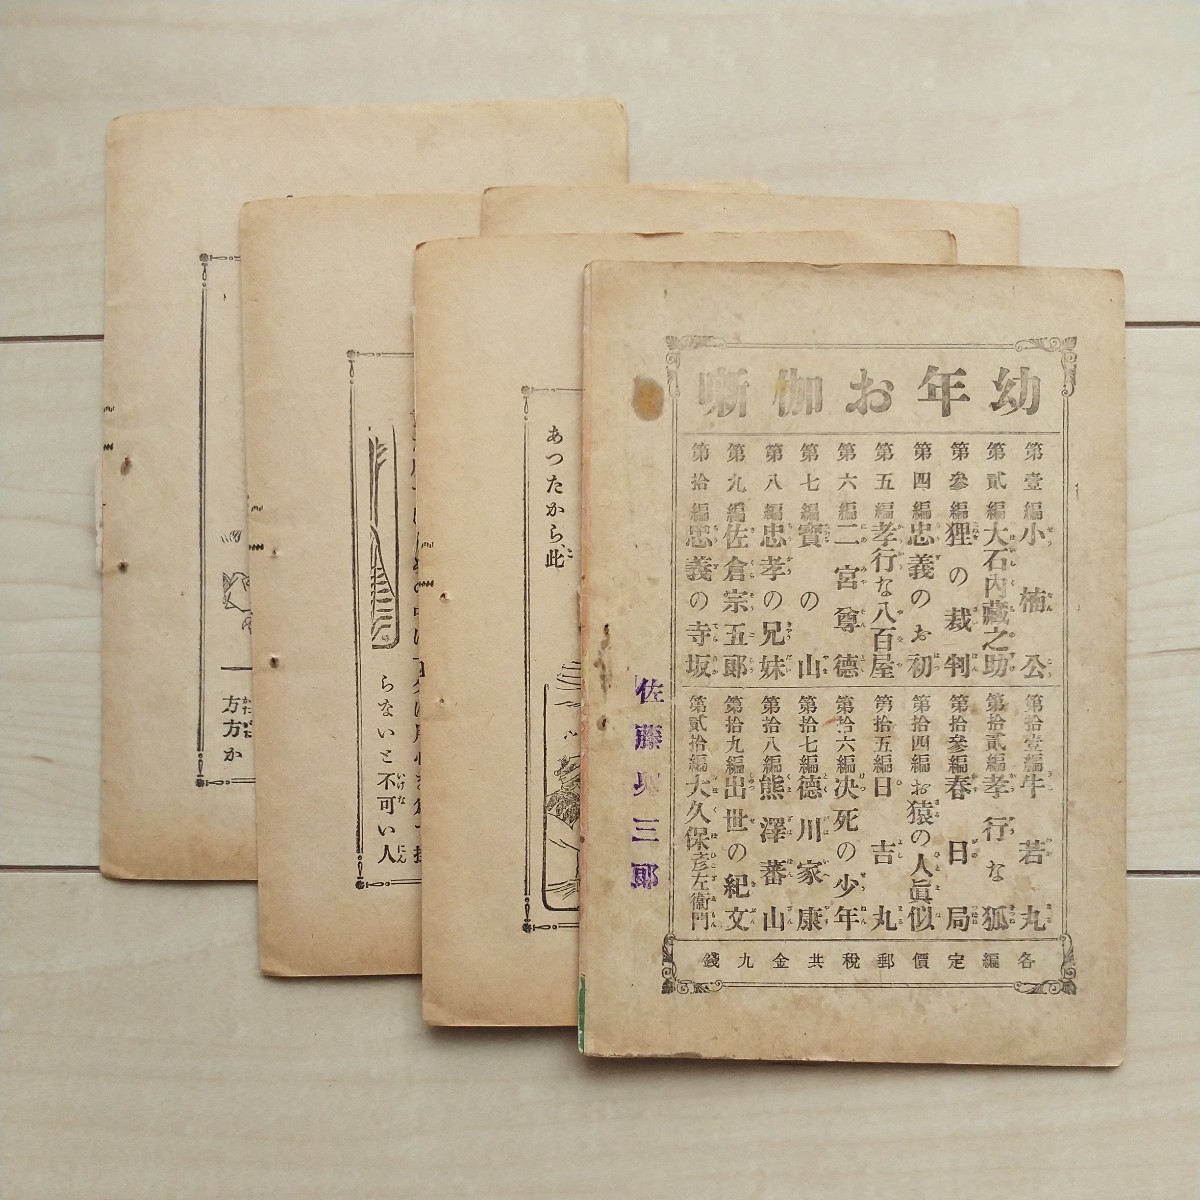 幼年お伽噺
第壹編小楠公
第貳編大石内藏之助
第參編狸の裁判
第四編忠義のお初
第五編孝行な八百屋
第六編二宮尊德
第七編寶の山
第八編忠孝の兄妹
第九編佐倉宗五郎
第拾編忠義の寺坂
第拾壹編牛若丸
第拾貳編孝行な狐
第拾參編春日局
第拾四編お猿の人眞似
第拾五編日吉丸
第拾六編决死の少年
第拾七編德川家康
第拾八編熊澤蕃山
第拾九編出世の紀文
第貳拾編大久保彦左衞門
各編定價郵稅共金九錢
佐藤 三郎
あつたから、此
らないと不可い人
方方か